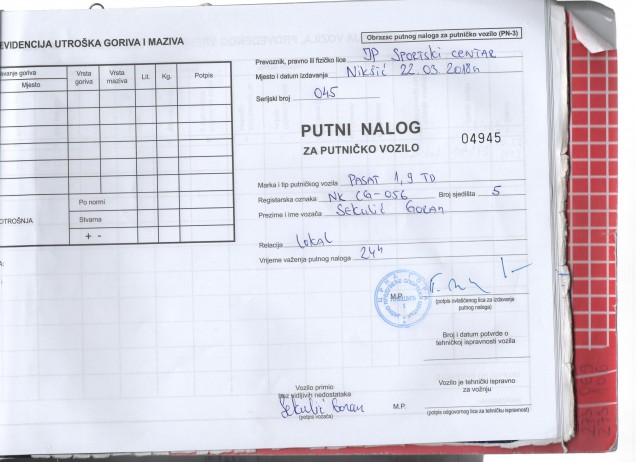 EVIDENCIJA UTROŠKA GORIVA I MAZIVA
Mjesto
Vrsta goriva
Vrsta maziva
Lit.
Kg.
Potpis
Po normi
Stvarna
+ -
Obrazac putnog naloga za putničko vozilo (PN-3)
Prevoznik, pravno ili fizičko lice JP SPORTSKI CENTAR
Mjesto i datum izdavanja Nikšić 22.03.2018
Serijski broj 045
PUTNI NALOG
ZA PUTNIČKO VOZILO
04945
Marka i tip putničkog vozila PASAT 1,9 TD
Registarska oznaka NK CG-056 Broj sjedišta 5
Prezime i ime vozača Sekulić Goran
Relacija Lokal
Vrijeme važenja putnog naloga 24h
M.P.
(potpis ovlašćenog lica za izdavanje
putnog naloga)
Broj i datum potvrde o
tehničkoj ispravnosti vozila
Vozilo primio
bez vidljivih nedostataka
Sekulić Goran
(potpis vozača)
M.P.
Vozilo je tehnički ispravno
za vožnju
(potpis odgovornog lica za tehničku ispravnost)